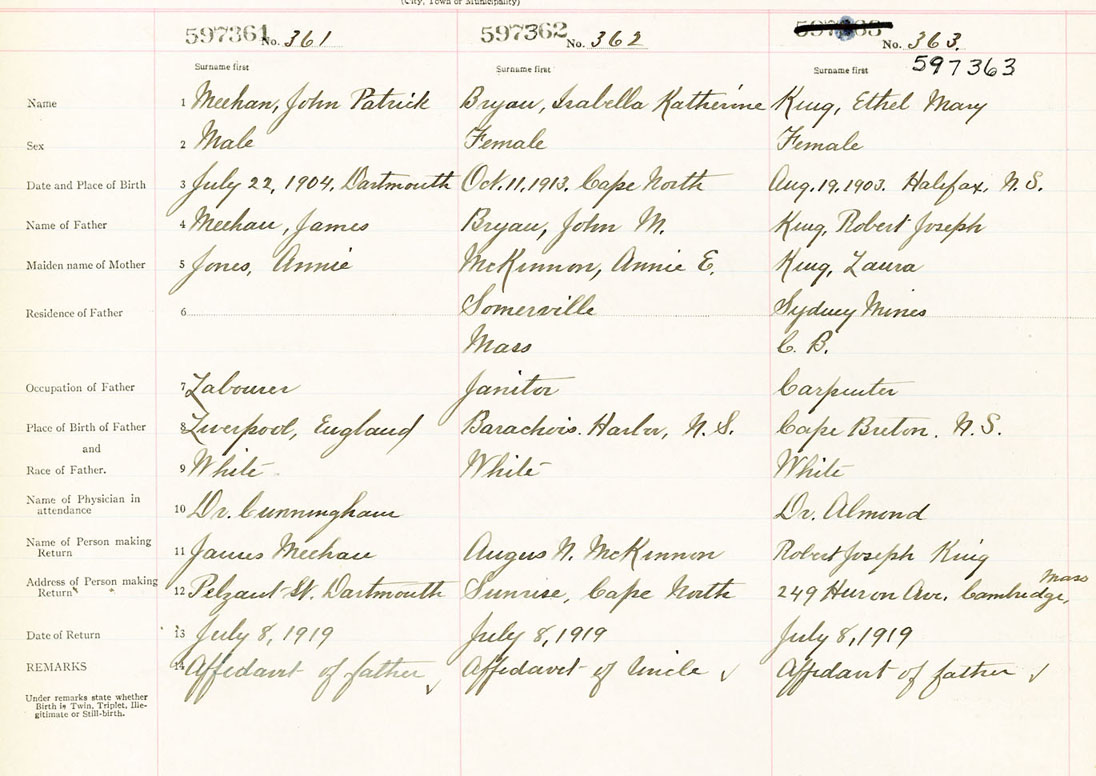 (City, Town or Municipality)
597361 No. 361 597362 No. 362 No. 363.
Surname first Surname first Surname first 597363
Name 1 Meehan, John Patrick Bryan, Isabella Katherine King, Ethel Mary
Sex 2 Male Female Female
Date and Place of Birth 3 July 22, 1904, Dartmouth Oct. 11, 1913. Cape North Aug. 19, 1903. Halifax, N.S.
Name of Father 4 Meehan, James Bryan, John M. King, Robert Joseph
Maiden name of Mother 5 Jones, Annie McKinnon, Annie E. King, Laura
Residence of Father 6 Somerville Sydney Mines
Mass C. B.
Occupation of Father 7 Labourer Janitor Carpenter
Place of Birth of Father 8 Liverpool, England Barachois. Harbor, N.S. Cape Breton. N.S.
and
Race of Father. 9 White White White
Name of Physician in
attendance 10 Dr. Cunningham Dr. Almond
Name of Person making
Return 11 James Meehan Angus N. McKinnon Robert Joseph King
Address of Person making Mass
Return 12 St. Dartmouth Sunrise, Cape North 249 Huron Ave. Cambridge,
Date of Return 13 July 8, 1919 July 8, 1919 July 8, 1919
REMARKS 14 Affidavit of father ✓ Affidavit of Uncle ✓ Affidavit of father ✓
Under remarks state whether
Birth is Twin, Triplet, Ille-
gitimate or Still-birth.